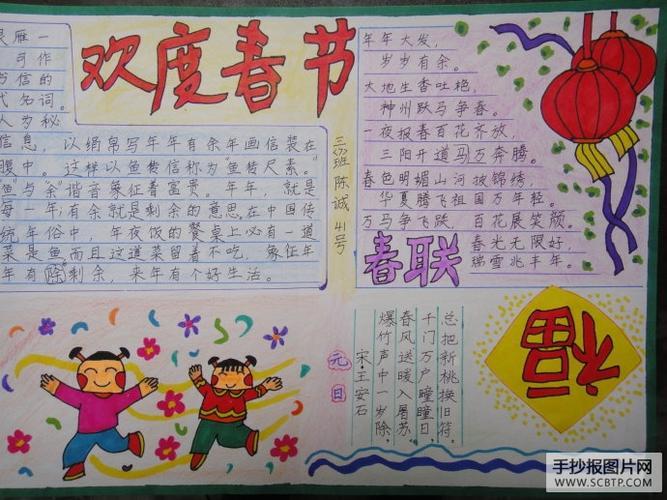 欢度春节
雁一
可作
书信的
代名词。
人为秘
信息，以绢帛写年年有余年画信装在
腹中。这样以鱼传信称为“鱼传尺素。
鱼”与“余”谐音象征着富贵。年年，就是
每一年；有余就是剩余的意思在中国传
统年俗中，年夜饭的餐桌上必有一道
菜是鱼而且这道菜留着不吃，象征年
年有除剩余，来年有个好生活。
班陈诚41号
年年大发，
岁岁有余。
大地生香吐艳，
神州跃马争春。
一夜报春百花齐放，
三阳开道马万奔腾。
春色明媚山河披锦绣，
华夏腾飞祖国万年轻。
万马争飞跃，百花展笑颜。
春光无限好，
瑞雪兆丰年。
春联
元日
宋·王安石
爆竹声中一岁除，
春风送暖入屠苏。
千门万户曈曈日，
总把新桃换旧符。
福
手抄报图片网
WWW.SCBTP.COM